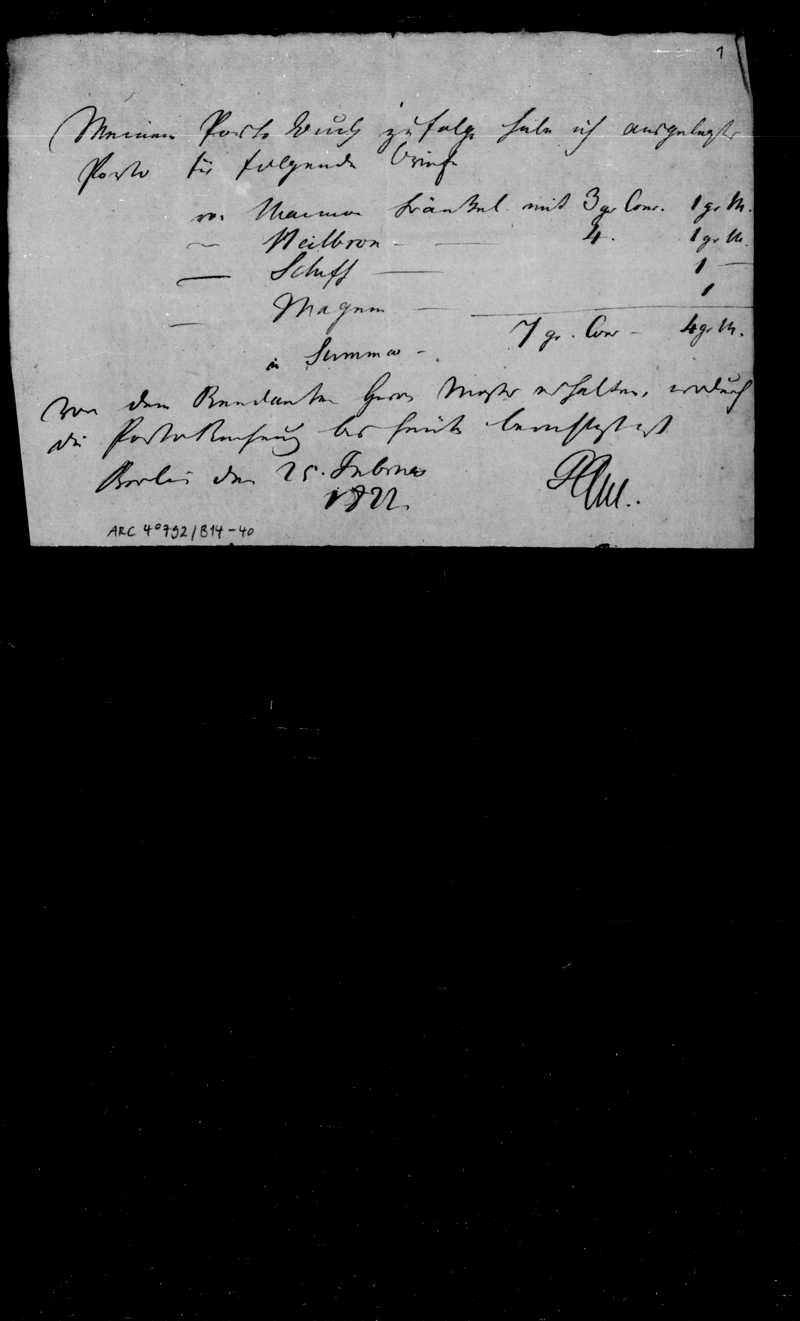 1
Meinem Porto Buch zufolge habe ich ausgelegtes
Porto für folgende Briefe
von Maimon Fränkel mit 3 gr Cour. 1 gr M.
— Heilbron — — 4. 1 gr M.
— Schiff — 1 —
— Magnus — 1
in Summa — 7 gr. Cour — 4 gr M.
von dem Rendanten Herrn erhalten, wodurch
die Porto Rechnung bis heute berichtigt ist
Berlin den 25. Februar
1822.
ARC 4° 792/B14-40